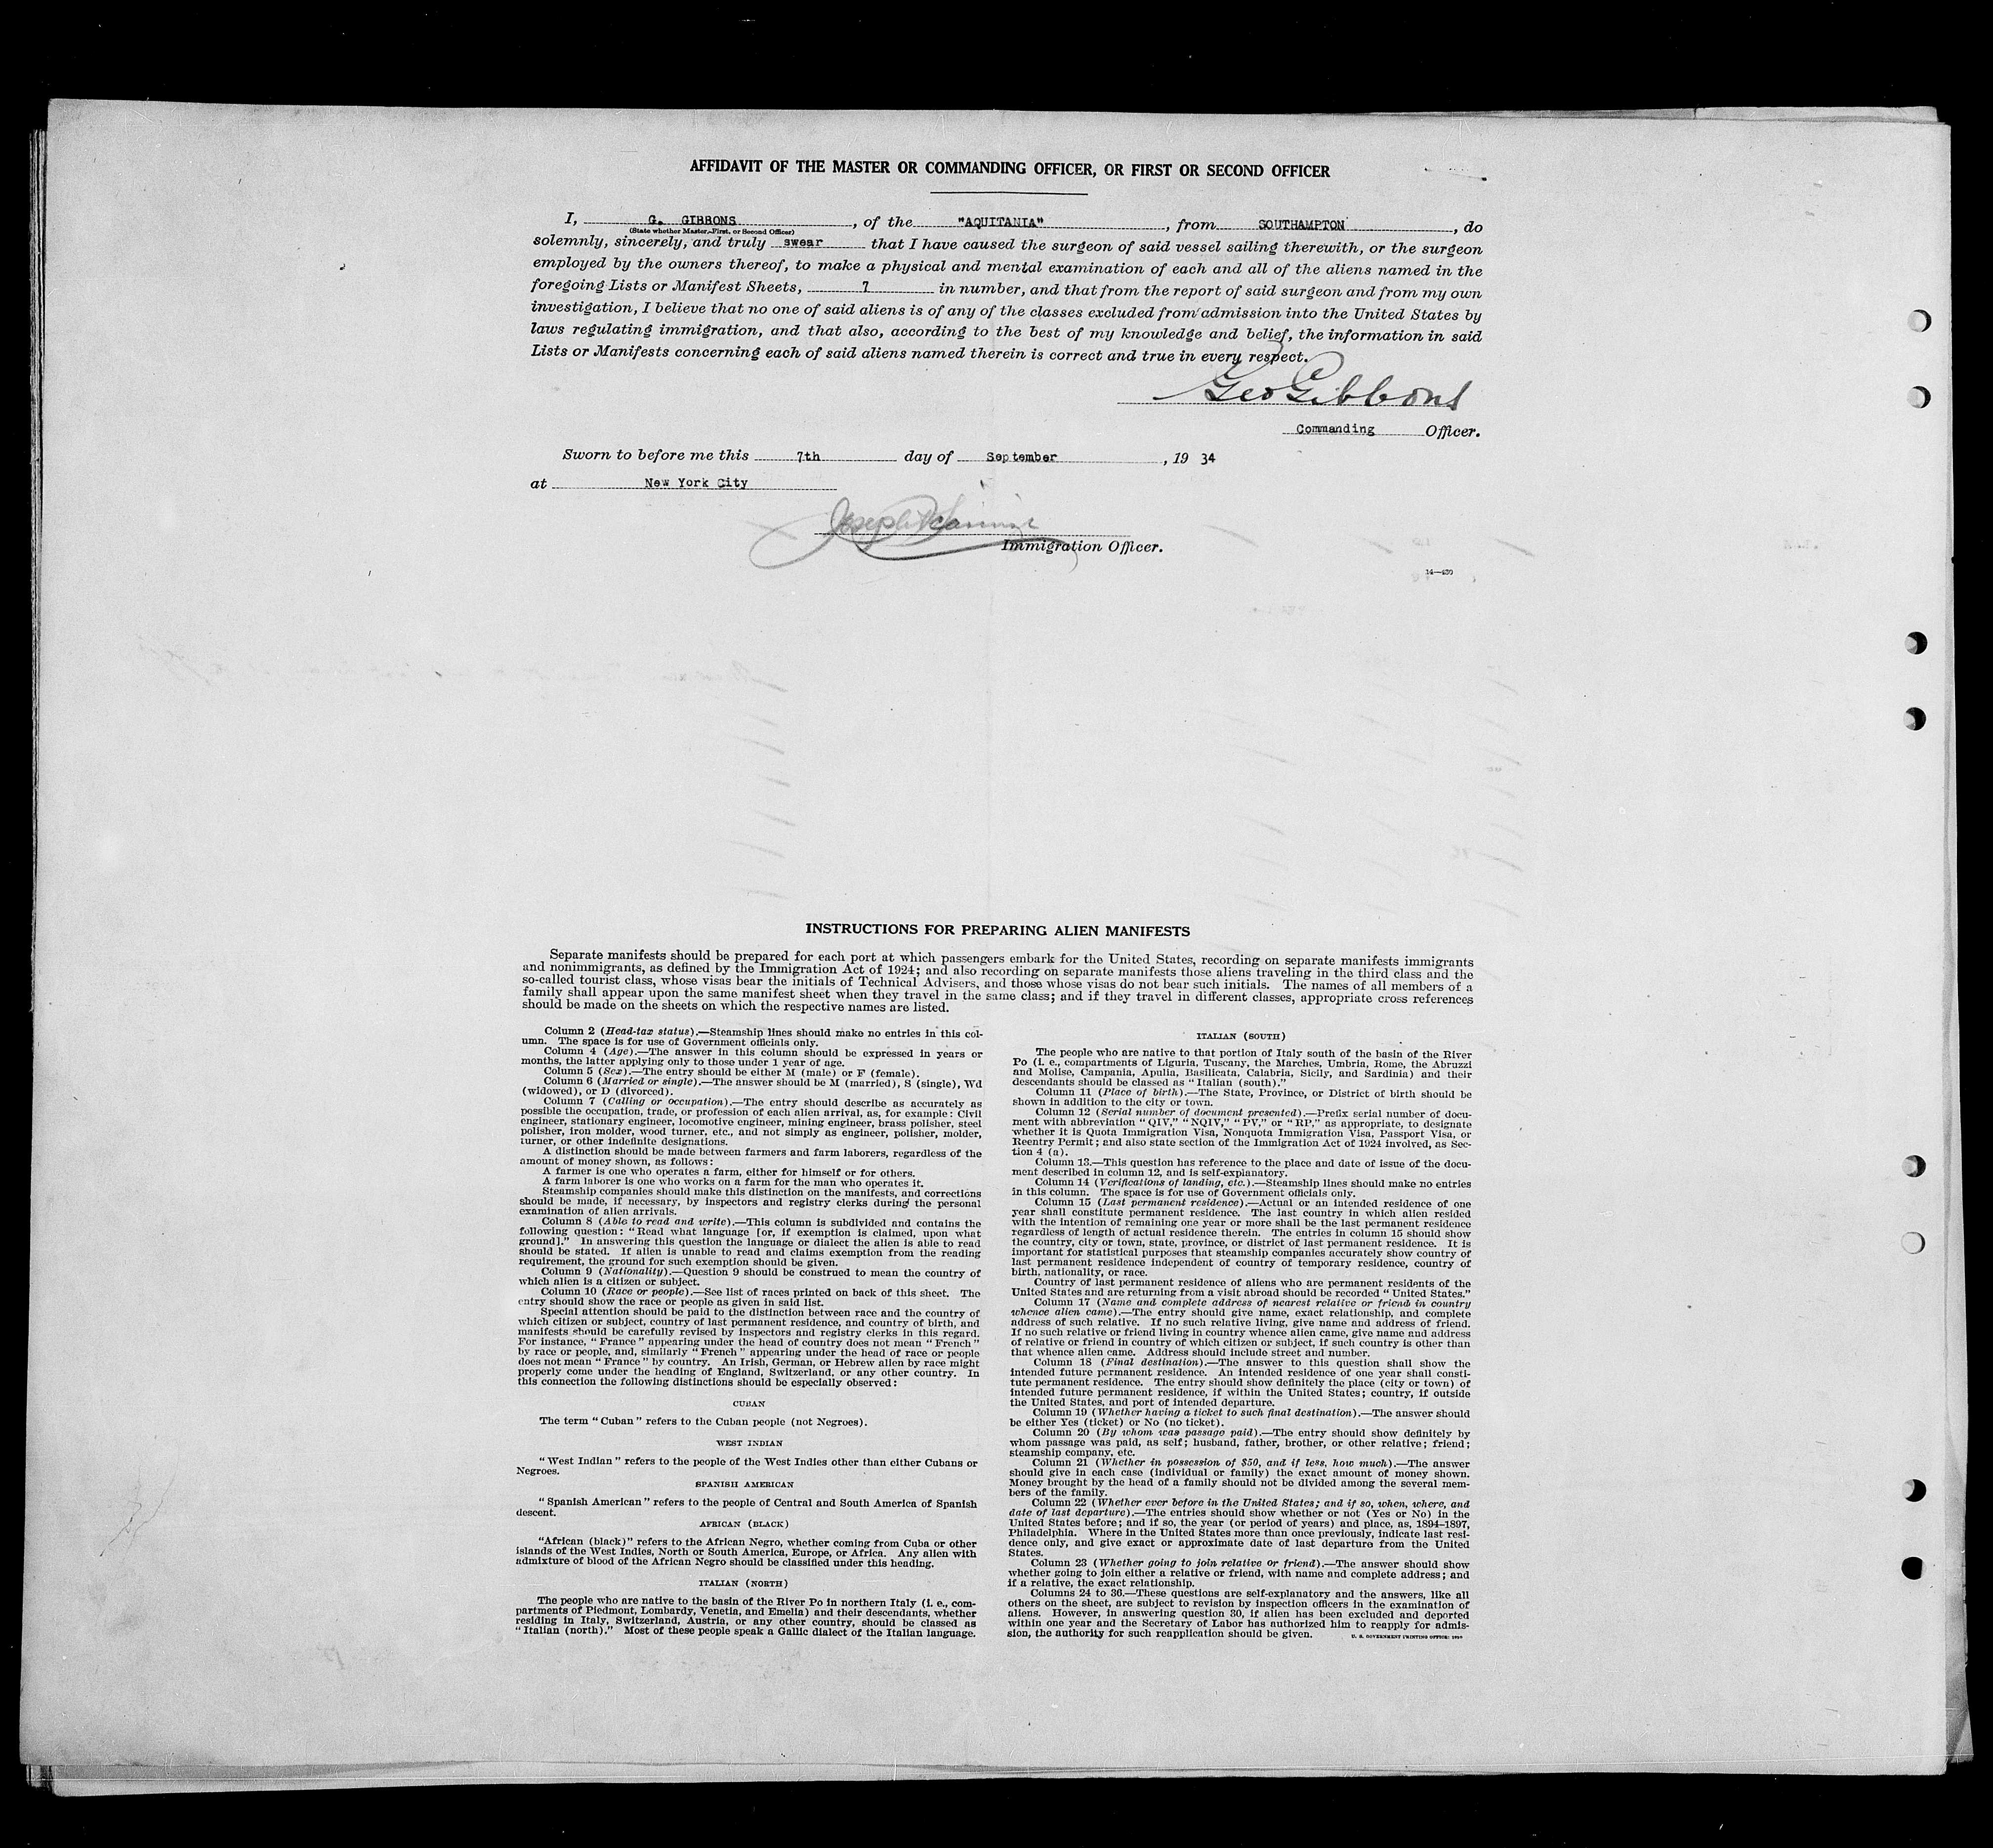 AFFIDAVIT OF THE MASTER OR COMMANDING OFFICER, OR FIRST OR SECOND OFFICER
I, G. GIBBONS, of the "AQUITANIA", from SOUTHAMPTON, do
(State whether Master, First, or Second Officer)
solemnly, sincerely, and truly swear that I have caused the surgeon of said vessel sailing therewith, or the surgeon
employed by the owners thereof, to make a physical and mental examination of each and all of the aliens named in the
foregoing Lists or Manifest Sheets, 7 in number, and that from the report of said surgeon and from my own
investigation, I believe that no one of said aliens is of any of the classes excluded from admission into the United States by
laws regulating immigration, and that also, according to the best of my knowledge and belief, the information in said
Lists or Manifests concerning each of said aliens named therein is correct and true in every respect.
Geo Gibbons
Commanding Officer.
Sworn to before me this 7th day of September, 19 34
at New York City
Joseph
Immigration Officer.
14—430
INSTRUCTIONS FOR PREPARING ALIEN MANIFESTS
Separate manifests should be prepared for each port at which passengers embark for the United States, recording on separate manifests immigrants
and nonimmigrants, as defined by the Immigration Act of 1924; and also recording on separate manifests those aliens traveling in the third class and the
so-called tourist class, whose visas bear the initials of Technical Advisers, and those whose visas do not bear such initials. The names of all members of a
family shall appear upon the same manifest sheet when they travel in the same class; and if they travel in different classes, appropriate cross references
should be made on the sheets on which the respective names are listed.
Column 2 (Head-tax status).—Steamship lines should make no entries in this col-
umn. The space is for use of Government officials only.
Column 4 (Age).—The answer in this column should be expressed in years or
months, the latter applying only to those under 1 year of age.
Column 5 (Sex).—The entry should be either M (male) or F (female).
Column 6 (Married or single).—The answer should be M (married), S (single), Wd
(widowed), or D (divorced).
Column 7 (Calling or occupation).—The entry should describe as accurately as
possible the occupation, trade, or profession of each alien arrival, as, for example: Civil
engineer, stationary engineer, locomotive engineer, mining engineer, brass polisher, steel
polisher, iron molder, wood turner, etc., and not simply as engineer, polisher, molder,
turner, or other indefinite designations.
A distinction should be made between farmers and farm laborers, regardless of the
amount of money shown, as follows:
A farmer is one who operates a farm, either for himself or for others.
A farm laborer is one who works on a farm for the man who operates it.
Steamship companies should make this distinction on the manifests, and corrections
should be made, if necessary, by inspectors and registry clerks during the personal
examination of alien arrivals.
Column 8 (Able to read and write).—This column is subdivided and contains the
following question: "Read what language [or, if exemption is claimed, upon what
ground]." In answering this question the language or dialect the alien is able to read
should be stated. If alien is unable to read and claims exemption from the reading
requirement, the ground for such exemption should be given.
Column 9 (Nationality).—Question 9 should be construed to mean the country of
which alien is a citizen or subject.
Column 10 (Race or people).—See list of races printed on back of this sheet. The
entry should show the race or people as given in said list.
Special attention should be paid to the distinction between race and the country of
which citizen or subject, country of last permanent residence, and country of birth, and
manifests should be carefully revised by inspectors and registry clerks in this regard.
For instance, "France" appearing under the head of country does not mean "French"
by race or people, and, similarly "French" appearing under the head of race or people
does not mean "France" by country. An Irish, German, or Hebrew alien by race might
properly come under the heading of England, Switzerland, or any other country. In
this connection the following distinctions should be especially observed:
CUBAN
The term "Cuban" refers to the Cuban people (not Negroes).
WEST INDIAN
"West Indian" refers to the people of the West Indies other than either Cubans or
Negroes.
SPANISH AMERICAN
"Spanish American" refers to the people of Central and South America of Spanish
descent.
AFRICAN (BLACK)
"African (black)" refers to the African Negro, whether coming from Cuba or other
islands of the West Indies, North or South America, Europe, or Africa. Any alien with
admixture of blood of the African Negro should be classified under this heading.
ITALIAN (NORTH)
The people who are native to the basin of the River Po in northern Italy (i. e., com-
partments of Piedmont, Lombardy, Venetia, and Emelia) and their descendants, whether
residing in Italy, Switzerland, Austria, or any other country, should be classed as
"Italian (north)." Most of these people speak a Gallic dialect of the Italian language.
ITALIAN (SOUTH)
The people who are native to that portion of Italy south of the basin of the River
Po (i. e., compartments of Liguria, Tuscany, the Marches, Umbria, Rome, the Abruzzi
and Molise, Campania, Apulia, Basilicata, Calabria, Sicily, and Sardinia) and their
descendants should be classed as "Italian (south)."
Column 11 (Place of birth).—The State, Province, or District of birth should be
shown in addition to the city or town.
Column 12 (Serial number of document presented).—Prefix serial number of docu-
ment with abbreviation "QIV," "NQIV," "PV," or "RP," as appropriate, to designate
whether it is Quota Immigration Visa, Nonquota Immigration Visa, Passport Visa, or
Reentry Permit; and also state section of the Immigration Act of 1924 involved, as Sec-
tion 4 (a).
Column 13.—This question has reference to the place and date of issue of the docu-
ment described in column 12, and is self-explanatory.
Column 14 (Verifications of landing, etc.).—Steamship lines should make no entries
in this column. The space is for use of Government officials only.
Column 15 (Last permanent residence).—Actual or an intended residence of one
year shall constitute permanent residence. The last country in which alien resided
with the intention of remaining one year or more shall be the last permanent residence
regardless of length of actual residence therein. The entries in column 15 should show
the country, city or town, state, province, or district of last permanent residence. It is
important for statistical purposes that steamship companies accurately show country of
last permanent residence independent of country of temporary residence, country of
birth, nationality, or race.
Country of last permanent residence of aliens who are permanent residents of the
United States and are returning from a visit abroad should be recorded "United States."
Column 17 (Name and complete address of nearest relative or friend in country
whence alien came).—The entry should give name, exact relationship, and complete
address of such relative. If no such relative living, give name and address of friend.
If no such relative or friend living in country whence alien came, give name and address
of relative or friend in country of which citizen or subject, if such country is other than
that whence alien came. Address should include street and number.
Column 18 (Final destination).—The answer to this question shall show the
intended future permanent residence. An intended residence of one year shall consti-
tute permanent residence. The entry should show definitely the place (city or town) of
intended future permanent residence, if within the United States; country, if outside
the United States, and port of intended departure.
Column 19 (Whether having a ticket to such final destination).—The answer should
be either Yes (ticket) or No (no ticket).
Column 20 (By whom was passage paid).—The entry should show definitely by
whom passage was paid, as self; husband, father, brother, or other relative; friend;
steamship company, etc.
Column 21 (Whether in possession of $50, and if less, how much).—The answer
should give in each case (individual or family) the exact amount of money shown.
Money brought by the head of a family should not be divided among the several mem-
bers of the family.
Column 22 (Whether ever before in the United States; and if so, when, where, and
date of last departure).—The entries should show whether or not (Yes or No) in the
United States before; and if so, the year (or period of years) and place, as, 1894–1897,
Philadelphia. Where in the United States more than once previously, indicate last resi-
dence only, and give exact or approximate date of last departure from the United
States.
Column 23 (Whether going to join relative or friend).—The answer should show
whether going to join either a relative or friend, with name and complete address; and
if a relative, the exact relationship.
Columns 24 to 36.—These questions are self-explanatory and the answers, like all
others on the sheet, are subject to revision by inspection officers in the examination of
aliens. However, in answering question 30, if alien has been excluded and deported
within one year and the Secretary of Labor has authorized him to reapply for admis-
sion, the authority for such reapplication should be given.
U. S. GOVERNMENT PRINTING OFFICE: